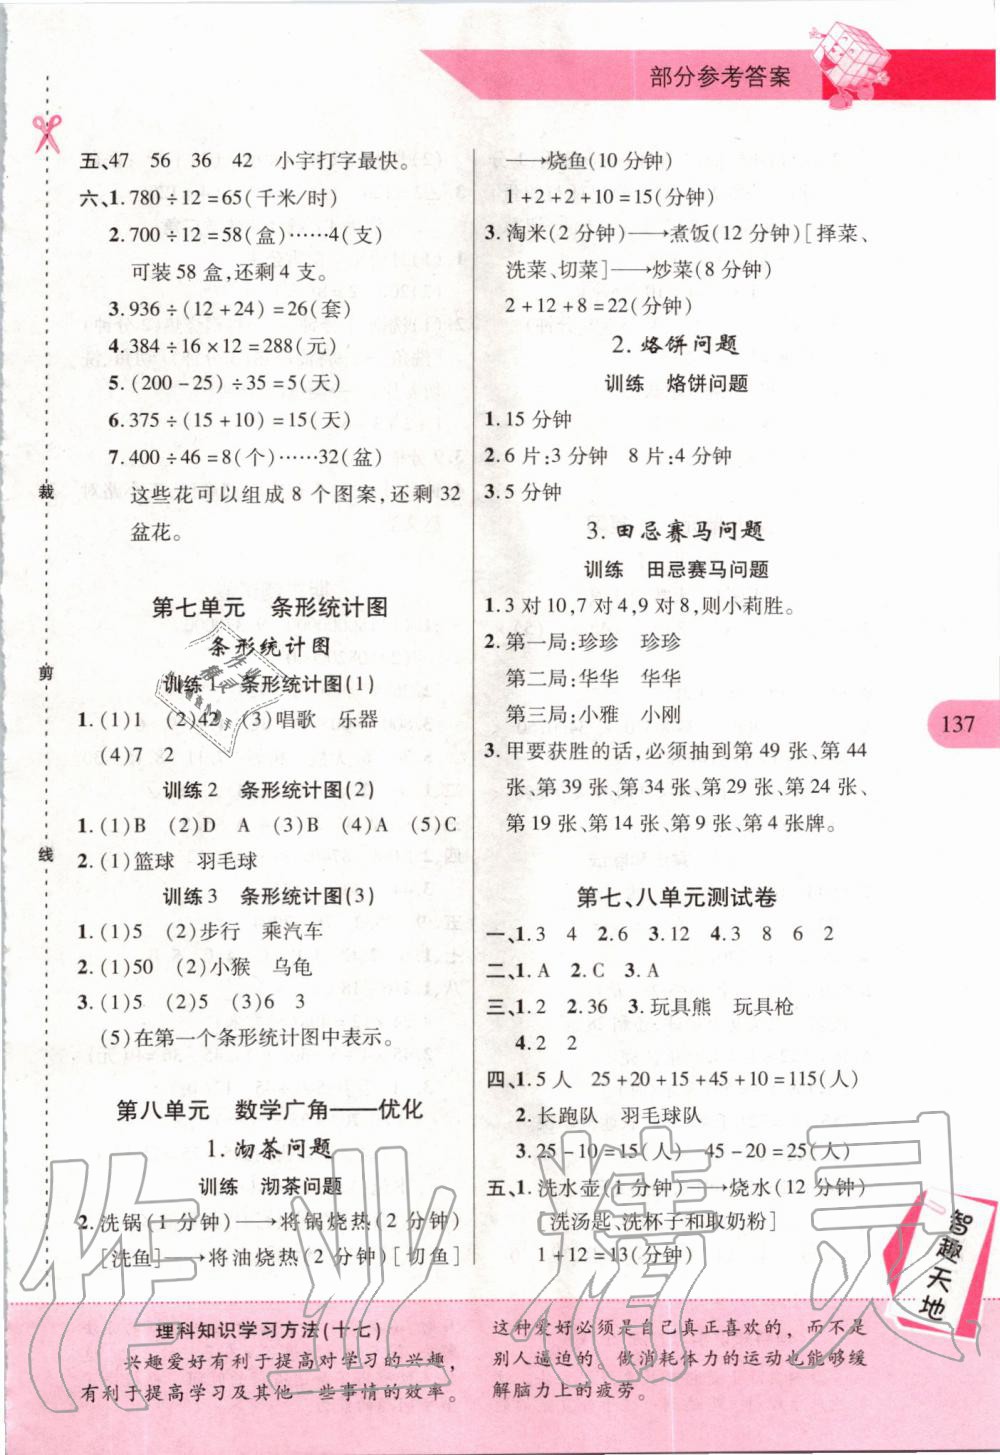 部分参考答案
五、47 56 36 42 小宇打字最快。
六、1.780÷12=65(千米/时)
2.700÷12=58(盒)……4(支)
可装58盒,还剩4支。
3.936÷(12+24)=26(套)
4.384÷16×12=288(元)
5.(200-25)÷35=5(天)
6.375÷(15+10)=15(天)
7.400÷46=8(个)……32(盆)
这些花可以组成8个图案,还剩32
盆花。
第七单元 条形统计图
条形统计图
训练1 条形统计图(1)
1.(1)1 (2)42 (3)唱歌 乐器
(4)7 2
训练2 条形统计图(2)
1.(1)B (2)D A (3)B (4)A (5)C
2.(1)篮球 羽毛球
训练3 条形统计图(3)
1.(1)5 (2)步行 乘汽车
2.(1)50 (2)小猴 乌龟
3.(1)5 (2)5 (3)6 3
(5)在第一个条形统计图中表示。
第八单元 数学广角——优化
1.沏茶问题
训练 沏茶问题
2.洗锅(1分钟)→将锅烧热(2分钟)
[洗鱼]→将油烧热(2分钟)[切鱼]
→烧鱼(10分钟)
1+2+2+10=15(分钟)
3.淘米(2分钟)→煮饭(12分钟)[择菜、
洗菜、切菜]→炒菜(8分钟)
2+12+8=22(分钟)
2.烙饼问题
训练 烙饼问题
1.15分钟
2.6片:3分钟 8片:4分钟
3.5分钟
3.田忌赛马问题
训练 田忌赛马问题
1.3对10,7对4,9对8,则小莉胜。
2.第一局:珍珍 珍珍
第二局:华华 华华
第三局:小雅 小刚
3.甲要获胜的话,必须抽到第49张、第44
张、第39张、第34张、第29张、第24张、
第19张、第14张、第9张、第4张牌。
第七、八单元测试卷
一、1.3 4 2.6 3.12 4.3 8 6 2
二、1.A 2.C 3.A
三、1.2 2.36 3.玩具熊 玩具枪
4.2 2
四、1.5人 25+20+15+45+10=115(人)
2.长跑队 羽毛球队
3.25-10=15(人) 45-20=25(人)
五、1.洗水壶(1分钟)→烧水(12分钟)
[洗汤匙、洗杯子和取奶粉]
1+12=13(分钟)
137
裁
剪
线
智趣天地
理科知识学习方法(十七)
兴趣爱好有利于提高对学习的兴趣,
有利于提高学习及其他一些事情的效率。
这种爱好必须是自己真正喜欢的,而不是
别人逼迫的。做消耗体力的运动也能够缓
解脑力上的疲劳。
作业精灵